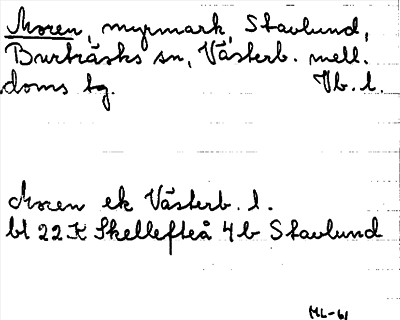 Moren, myrmark, Stavlund,
Burträsks sn, Västerb. mell.
doms tg. Vb. l.
Moren ek Västerb. l.
bl 22 K Skellefteå 4b Stavlund
ML-61